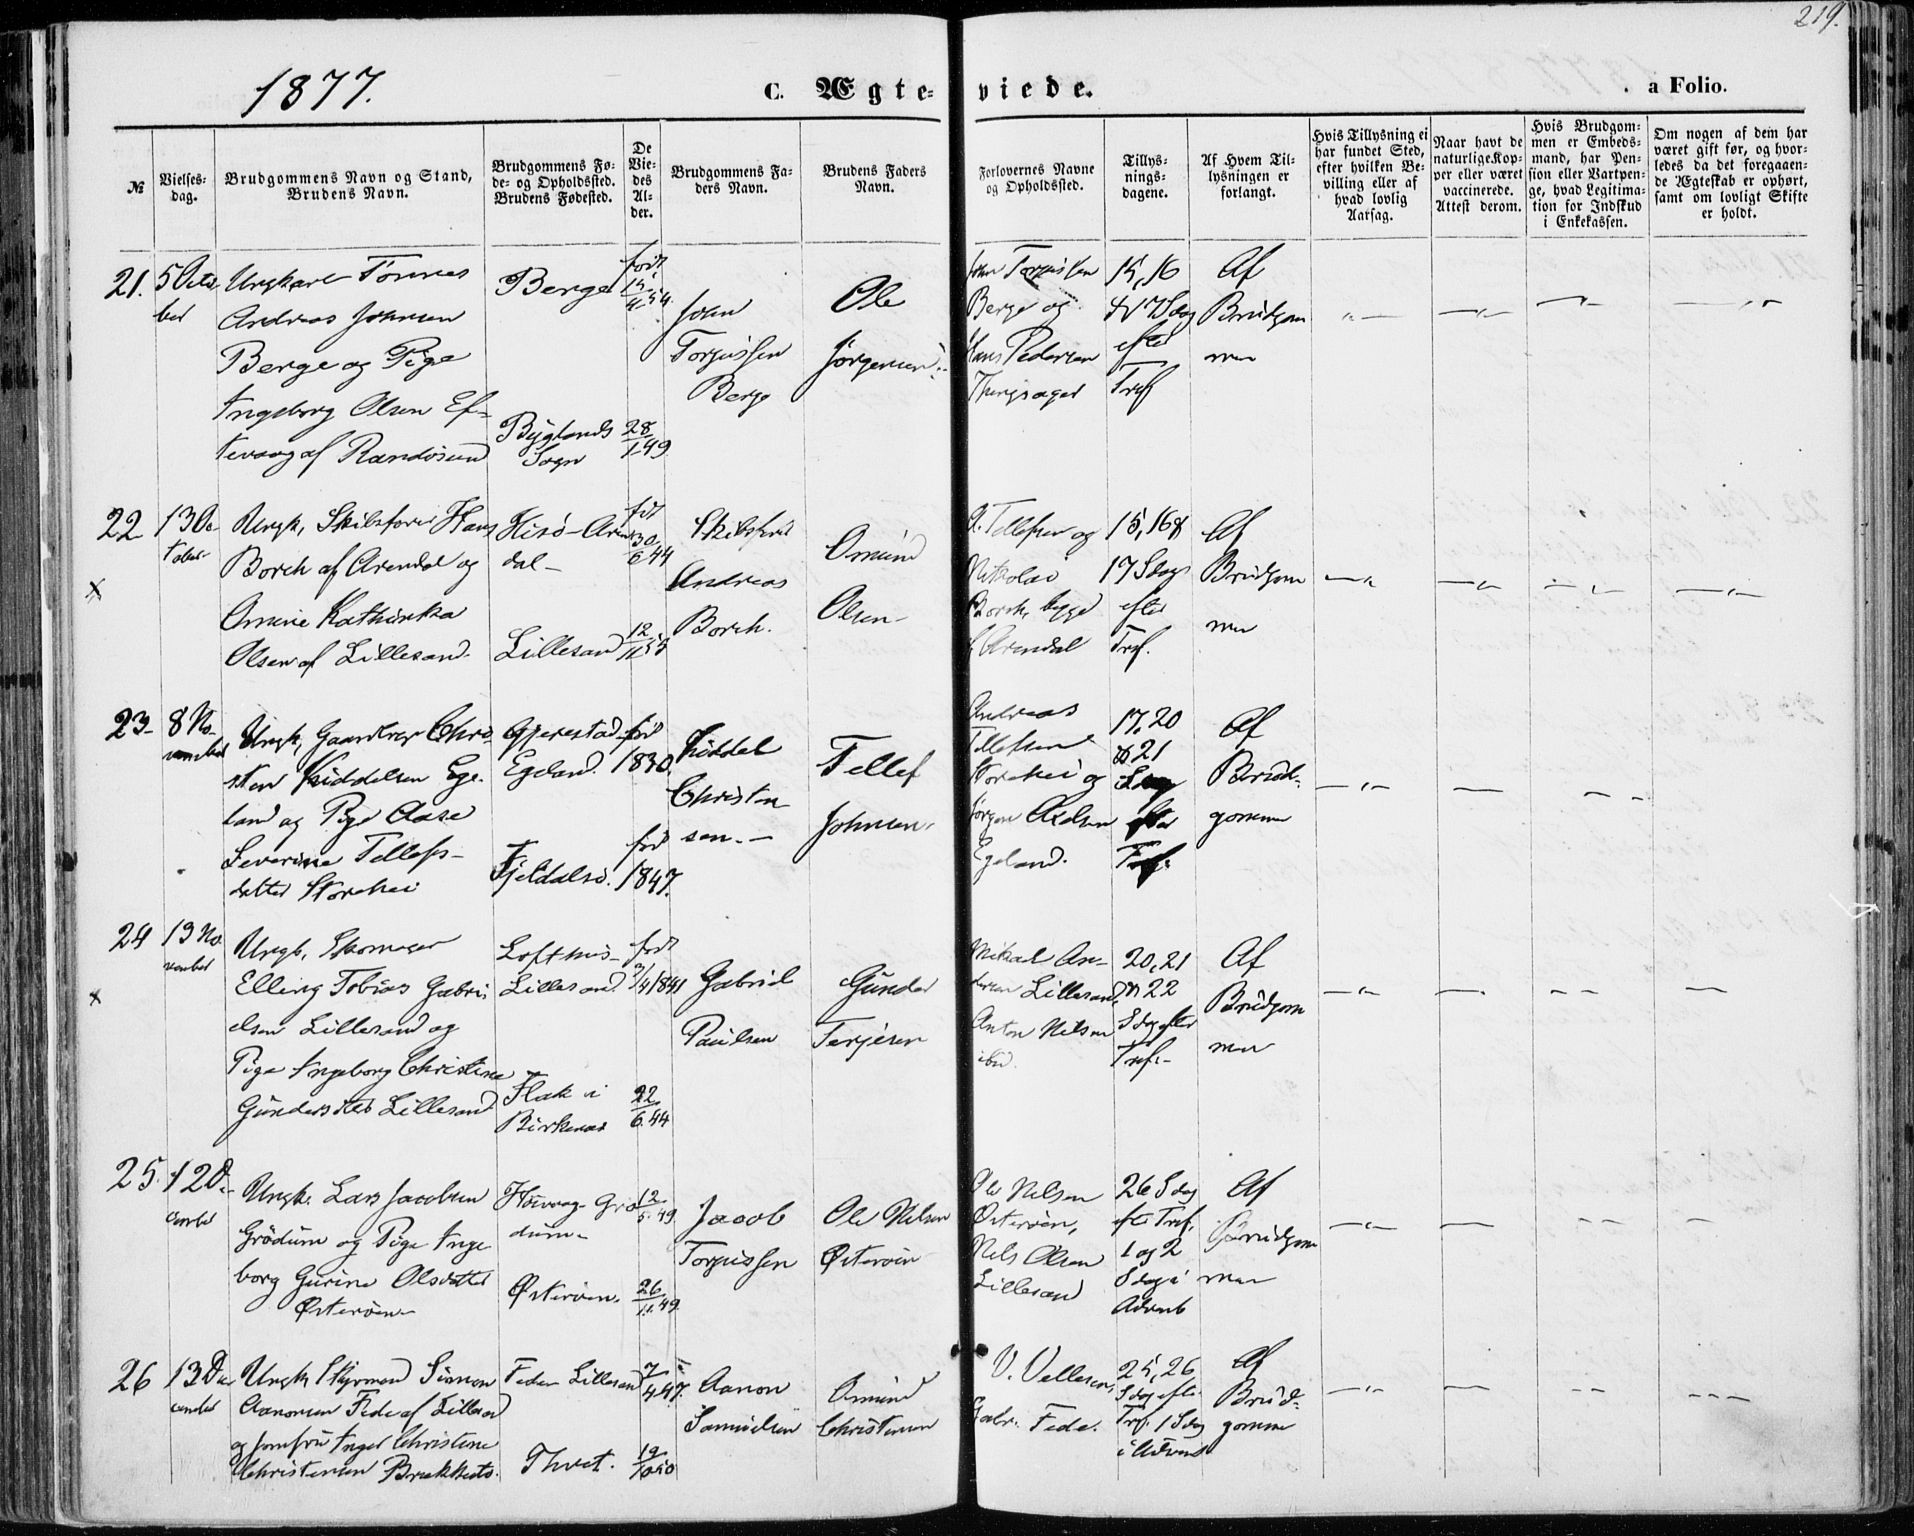 219.
1877.
C. Ægte- viede.
a Folio.
№
Vielses-
dag.
Brudgommens Navn og Stand,
Brudens Navn.
Brudgommens Fø-
de- og Opholdssted.
Brudens Fødested.
De
Vie-
des
Al-
der.
Brudgommens Fa-
ders Navn.
Brudens Faders
Navn.
Forlovernes Navne
og Opholdssted.
Tillys-
nings-
dagene.
Af Hvem Til-
lysningen er
forlangt.
Hvis Tillysning ei
har fundet Sted,
efter hvilken Be-
villing eller af
hvad lovlig
Aarsag.
Naar havt de
naturlige Kop-
per eller været
vaccinerede.
Attest derom.
Hvis Brudgom-
men er Embeds-
mand, har Pen-
sion eller Vartpen-
ge, hvad Legitima-
tion for Indskud
i Enkekassen.
Om nogen af dem har
været gift før, og hvor-
ledes da det foregaaen-
de Ægteskab er ophørt,
samt om lovligt Skifte
er holdt.
21.
5 Octo
ber
Ungkarl Tønnes
Andreas Johnsen
Berge og Pige
Ingeborg Olsen Ef-
tevaag af Randøsund
Berge
Byglands
Sogn
født
15/4 54
28/1 49
John
Torjussen
Berge
Ole
Jørgensen
John Torjussen
Berge og
Hans Pedersen
Thingsager
15, 16
& 17 Sdag
efter
Tref
Af
Brudgom
men
22
13 Oc
tober
Ungk, Skibsfører Hans
Borch af Arendal og
Omine Kathinka
Olsen af Lillesand
Hisø - Aren
dal -
Lillesand
født
30/6 44
12/11 55
Skibsfører
Andreas
Borch.
Omund
Olsen
O. Tellefsen og
Nikolai
Borch, begge
af Arendal
15, 16 &
17 Sdag
efter
Tref.
Af
Brudgom
men
23
8 No
vember
Ungk, Gaardbrger Chri-
sten Kiddelsen Ege-
land og Pige Aase
Severine Tellefs-
datter Storehei
Gjerestad
Egeland.
Fjeldalsø.
født
1830.
født
1847.
Kiddel
Christen
sen. -
Tellef
Johnsen.
Andreas
Tellefsen
Storehei og
Jørgen Axelsen
Egeland.
17, 20
& 21
Sdag
efter
Tref.
Af
Brud-
gommen
24
13 No
vember
Ungk, Skomager
Elling Tobias Gabri-
elsen Lillesand og
Pige Ingeborg Christine
Gundersdtr Lillesand
Lofthus -
Lillesand
Flak i
Birkenæs
født
3/4 1841
22/6 44
Gabriel
Paulsen
Gunder
Terjesen
Mikal An-
dersen Lillesand
Anton Nilsen
ibid.
20, 21
& 22
Sdag efter
Tref. -
Af
Brudgom
men
25.
12 De
cember
Ungk. Lars Jacobsen
Grødum og Pige Inge
borg Gurine Olsdatter
Østerøen
Høivaag - Grø
dum -
Østerøen.
12/5 49
26/11 49
Jacob
Torjussen
Ole Nilsen
Østerøen
Ole Nilsen
Østerøen,
Nils Olsen
Lillesand
26 Sdag
efter Tref.
1 og 2
Sdag i
Advent
Af
Brudgom
men
26
13 De
cember
Ungk, Styrmand Simon
Aanonsen Fede af Lillesand
og Jomfru Inger Christine
Christensen Brækkestø.
Fede - Lillesand
Thvet.
7/4 47.
19/10 50
Aanon
Samuelsen
Omund
Christensen
V. Vellesen,
Gabr. Fede.
25, 26
Sdag efter
Tref. 1 Sdag
i Advent
Af
Brud-
gommen